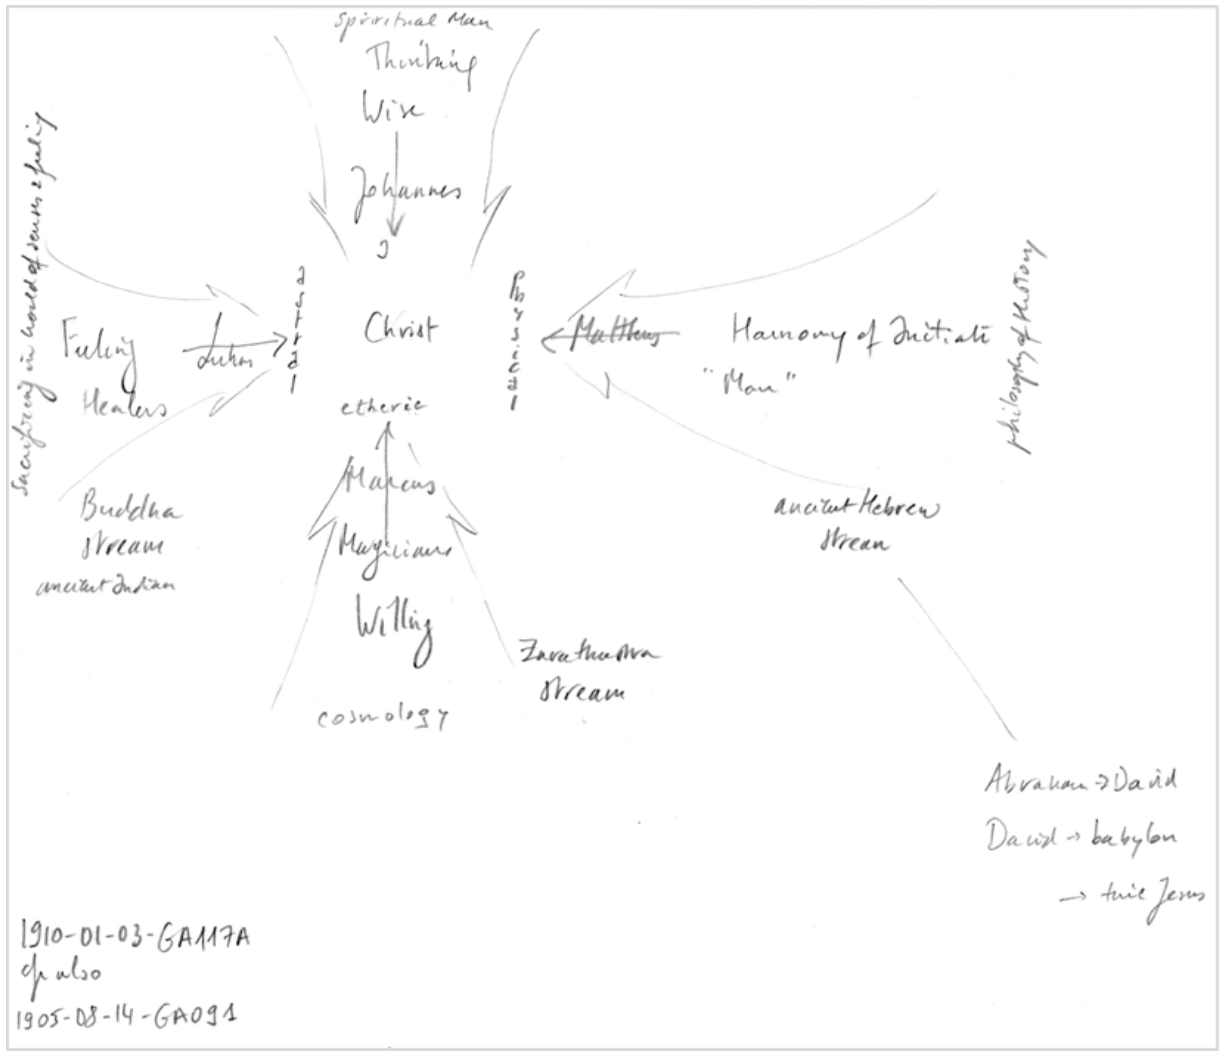 Spiritual Man
Thinking
Wise
Johannes
J
Sacrificing in world of senses & feeling
Feeling
Lukas
Healers
astral
Christ
etheric
Physical
Mattheus
Harmony of Initiate
"Man"
philosophy of History
Buddha
stream
ancient Indian
Marcus
Magicians
Willing
cosmology
Zarathustra
stream
ancient Hebrew
stream
Abraham → David
David → babylon
→ Jesus
1910-01-03-GA117A
cp also
1905-08-14-GA091